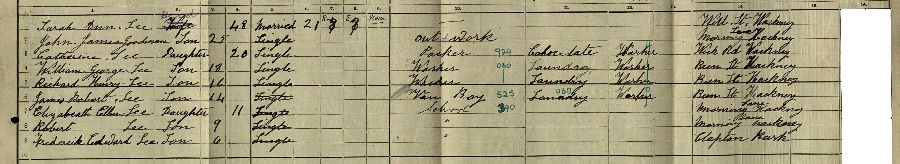 Sarah Ann Lee Wife 48 Married 21 8 7 None Wild St, Hackney
John James Goodman Son 25 Single out work Lane Hackney
Catherine Lee Daughter 20 Single Packer 929 Chocolate Worker Wick Rd Hackney
William George Lee Son 18 Single Worker 030 Laundry Worker Bun St Hackney
Richard Henry Lee Son 16 Single Worker Laundry Worker Bun St Hackney
James Robert Lee Son 14 Single Van Boy 525 Laundry 030 Worker Bun St, Hackney
Elizabeth Ellen Lee Daughter 11 Single School 390 Lane Hackney
Robert Lee Son 9 Single " Lane Hackney
Frederick Edward Lee Son 6 Single " Clapton Park
10